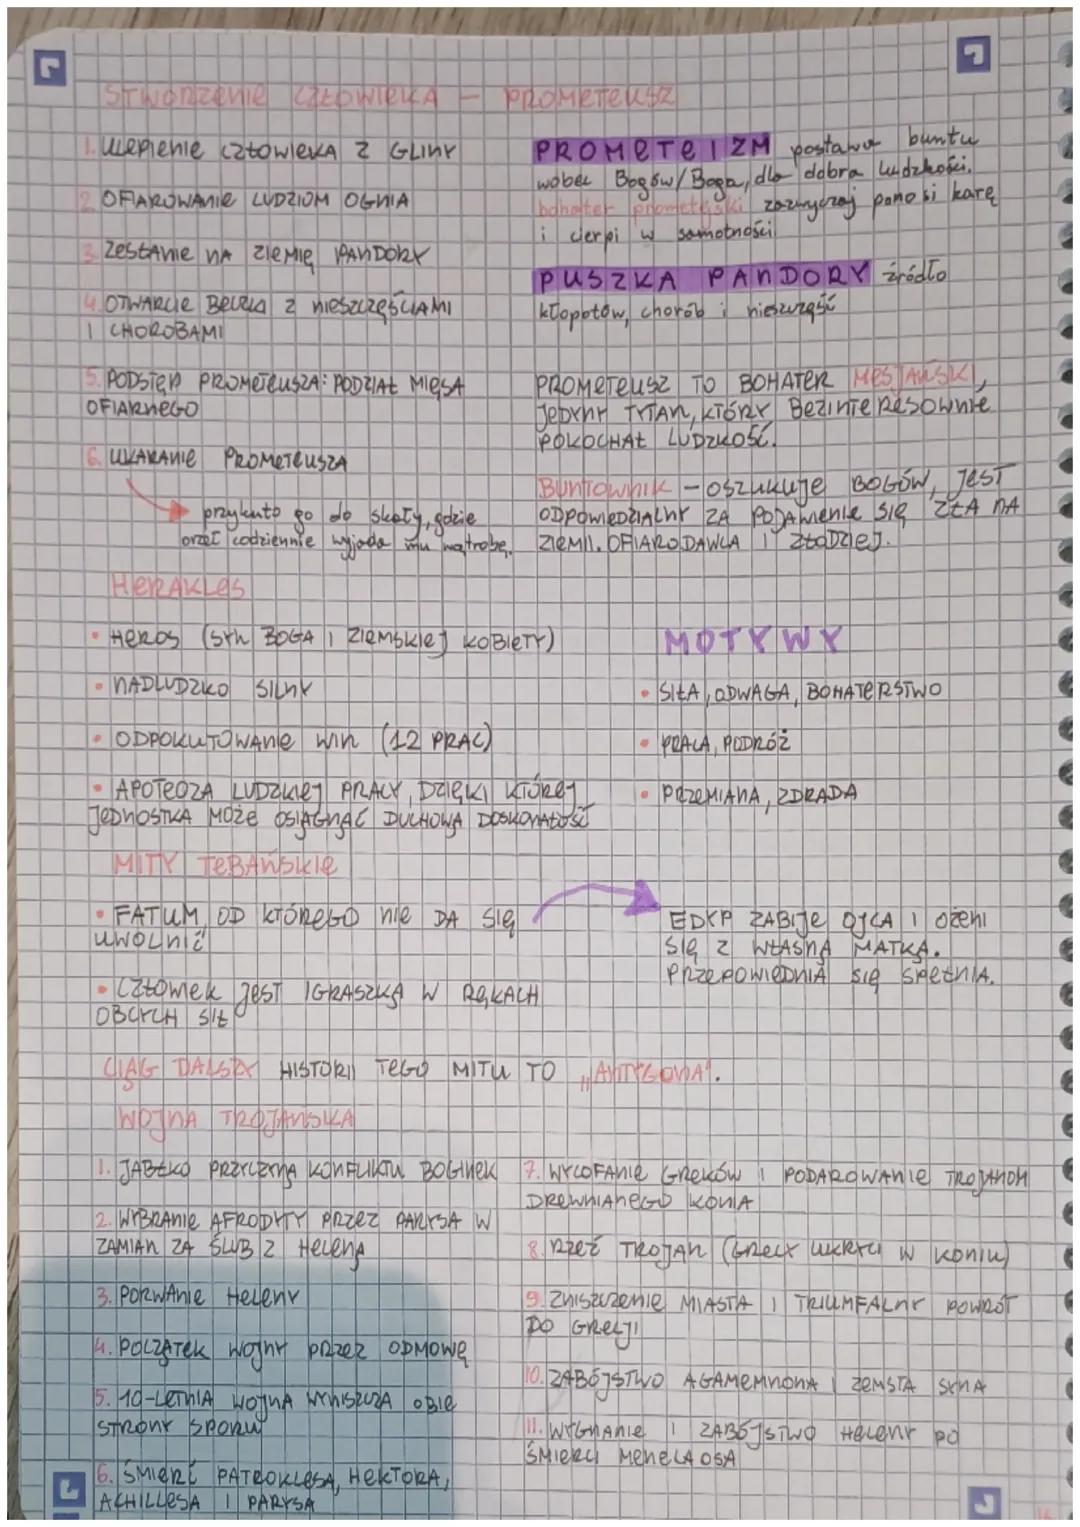 STWORZENIE CZŁOWIEKA - PROMETEUSZ
1. ULEPIENIE CZŁOWIEKA Z GLINY
2. OFIAROWANIE LUDZIOM OGNIA
3. ZESŁANIE NA ZIEMIĘ PANDORY
4. OTWARCIE BECZKI Z NIESZCZĘŚCIAMI
I CHOROBAMI
5. PODSTĘP PROMETEUSZA: PODZIAŁ MIĘSA
OFIARNEGO
6. UKARANIE PROMETEUSZA
przykuto go do skały, gdzie
orzeł codziennie wyjada mu wątrobę.
PROMETEIZM postawa buntu
wobec Bogów/Boga, dla dobra ludzkości.
bohater prometejski zazwyczaj ponosi karę
i cierpi w samotności
PUSZKA PANDORY źródło
kłopotów, chorób i nieszczęść
PROMETEUSZ TO BOHATER MESJAŃSKI,
JEDYNY TYTAN, KTÓRY BEZINTERESOWNIE
POKOCHAŁ LUDZKOŚĆ.
BUNTOWNIK - OSZUKUJE BOGÓW, JEST
ODPOWIEDZIALNY ZA POJAWIENIE SIĘ ZŁA NA
ZIEMII. OFIARODAWCA I ZŁODZIEJ.
HERAKLES
• HEROS (SYN BOGA I ZIEMSKIEJ KOBIETY)
• NADLUDZKO SILNY
• ODPOKUTOWANIE WIN (12 PRAC)
• APOTEOZA LUDZKIEJ PRACY, DZIĘKI KTÓREJ
JEDNOSTKA MOŻE OSIĄGNĄĆ DUCHOWĄ DOSKONAŁOŚĆ
MOTYWY
• SIŁA, ODWAGA, BOHATERSTWO
• PRACA, PODRÓŻ
• PRZEMIANA, ZDRADA
MITY TEBAŃSKIE
• FATUM, OD KTÓREGO NIE DA SIĘ
UWOLNIĆ
• CZŁOWIEK JEST IGRASZKĄ W RĘKACH
OBCYCH SIŁ
EDYP ZABIJE OJCA I OŻENI
SIĘ Z WŁASNĄ MATKĄ.
PRZEPOWIEDNIA SIĘ SPEŁNIA.
CIĄG DALSZY HISTORII TEGO MITU TO „ANTYGONA".
WOJNA TROJAŃSKA
1. JABŁKO PRZYCZYNĄ KONFLIKTU BOGINEK
2. WYBRANIE AFRODYTY PRZEZ PARYSA W
ZAMIAN ZA ŚLUB Z HELENĄ
3. PORWANIE HELENY
4. POCZĄTEK WOJNY PRZEZ ODMOWĘ
5. 10-LETNIA WOJNA WYNISZCZA OBIE
STRONY SPORU
6. ŚMIERĆ PATROKLESA, HEKTORA,
ACHILLESA I PARYSA
7. WYCOFANIE GREKÓW I PODAROWANIE TROJANOM
DREWNIANEGO KONIA
8. RZEŹ TROJAN (GRECY UKRYCI W KONIU)
9. ZNISZCZENIE MIASTA I TRIUMFALNY POWRÓT
DO GRECJI
10. ZABÓJSTWO AGAMEMNONA I ZEMSTA SYNA
11. WYGNANIE I ZABÓJSTWO HELENY PO
ŚMIERCI MENELAOSA